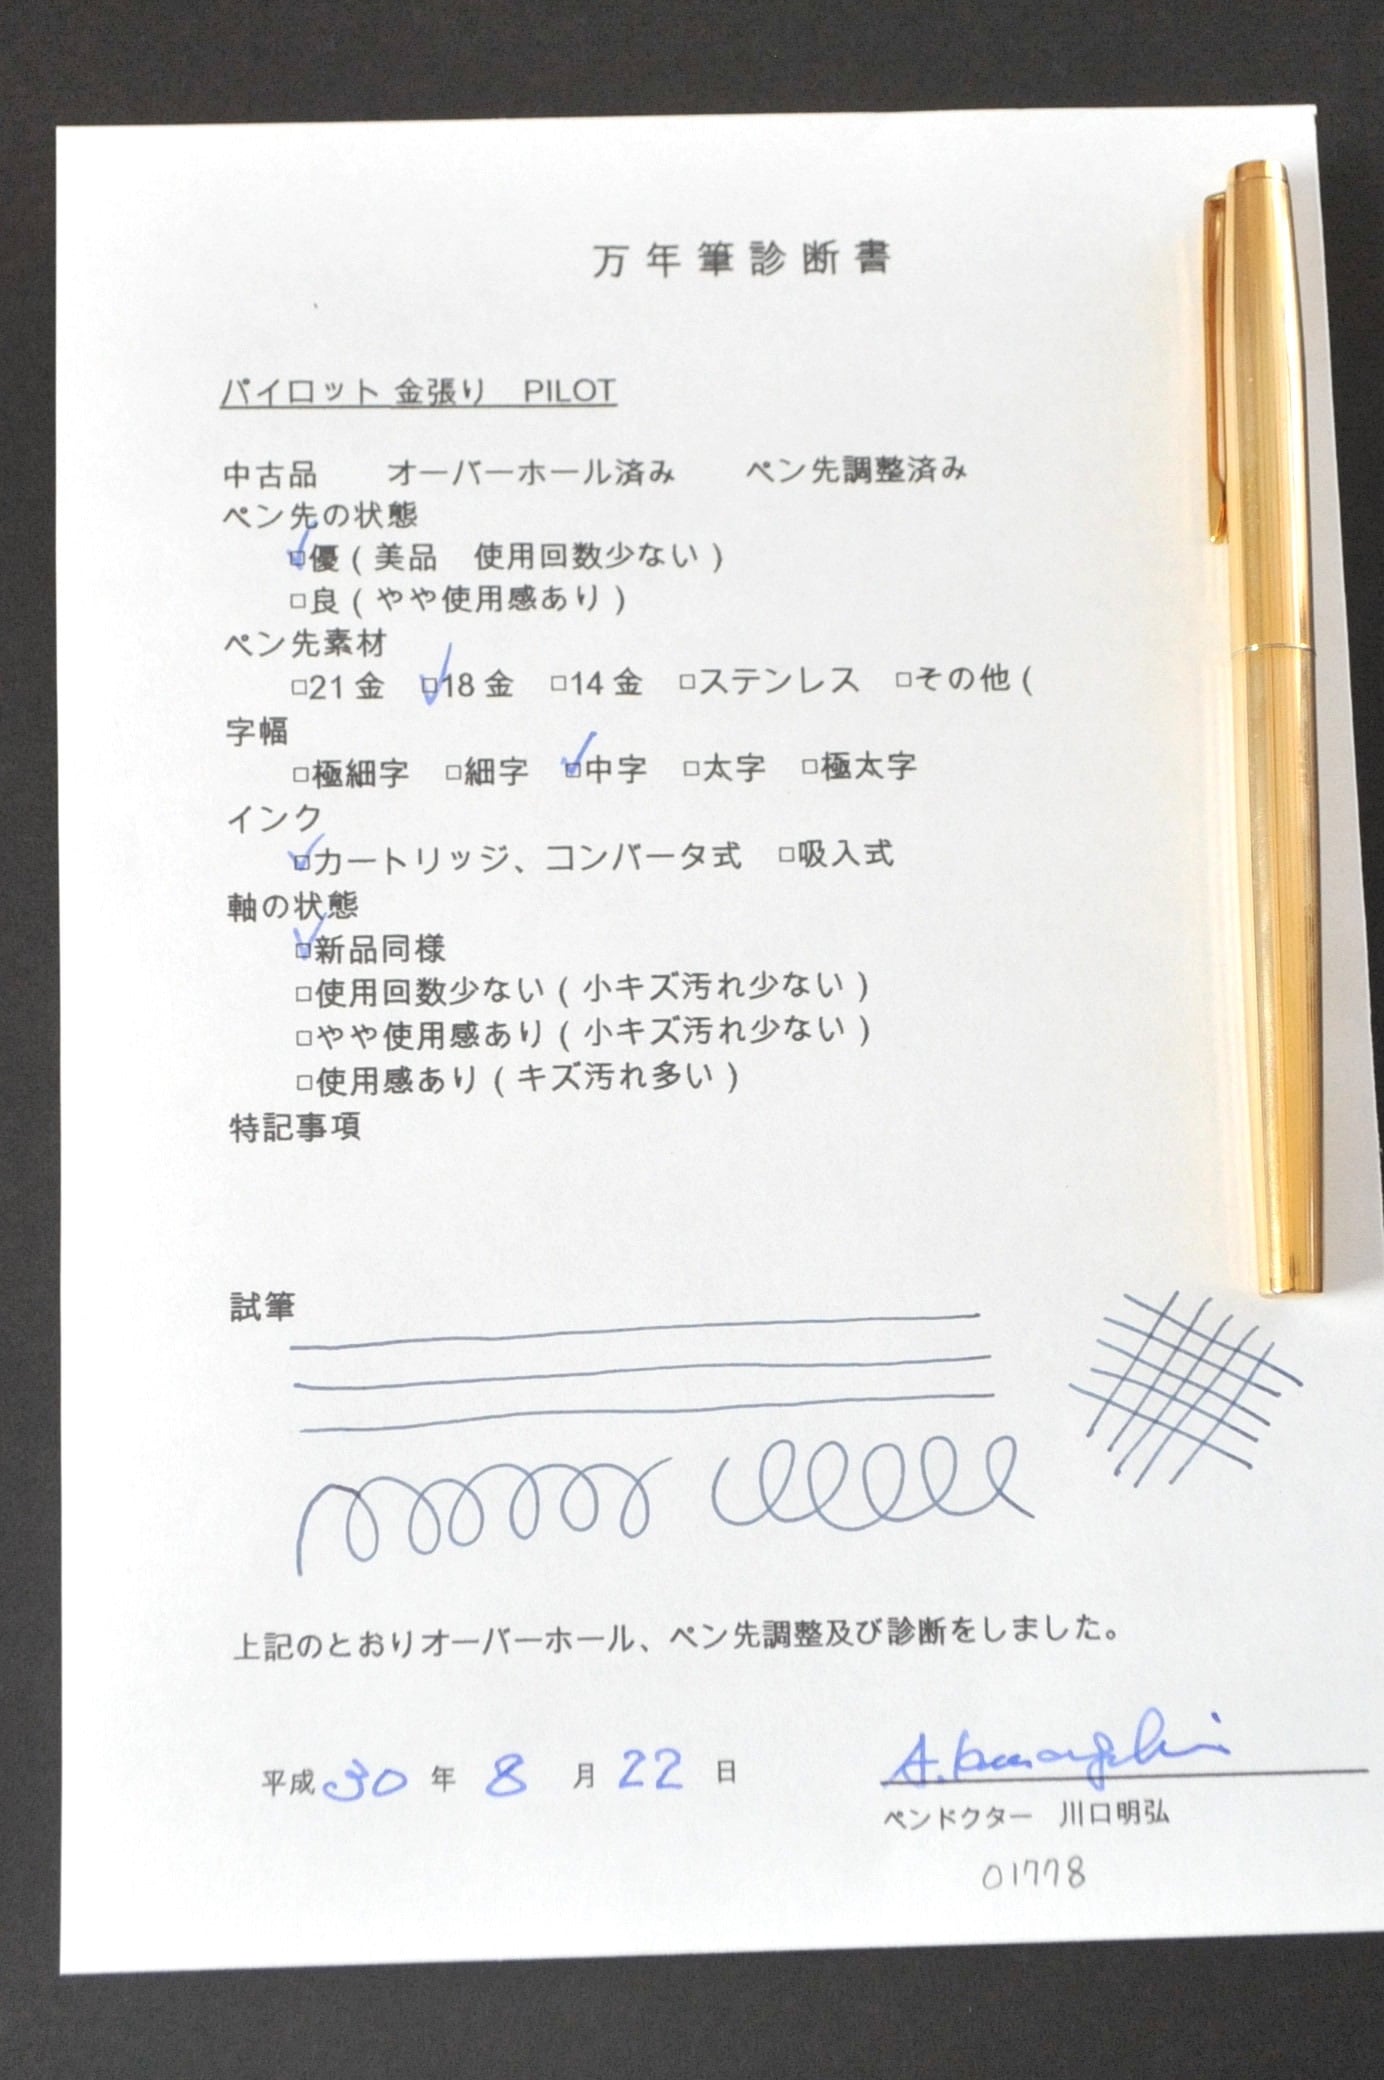 万年筆診断書
パイロット 金張り　PILOT
中古品　　オーバーホール済み　　ペン先調整済み
ペン先の状態
□優（美品　使用回数少ない）
□良（やや使用感あり）
ペン先素材
□21金　□18金　□14金　□ステンレス　□その他（
字幅
□極細字　□細字　□中字　□太字　□極太字
インク
□カートリッジ、コンバータ式　□吸入式
軸の状態
□新品同様
□使用回数少ない（小キズ汚れ少ない）
□やや使用感あり（小キズ汚れ少ない）
□使用感あり（キズ汚れ多い）
特記事項
試筆
上記のとおりオーバーホール、ペン先調整及び診断をしました。
平成30年8月22日
ペンドクター　川口明弘
01778